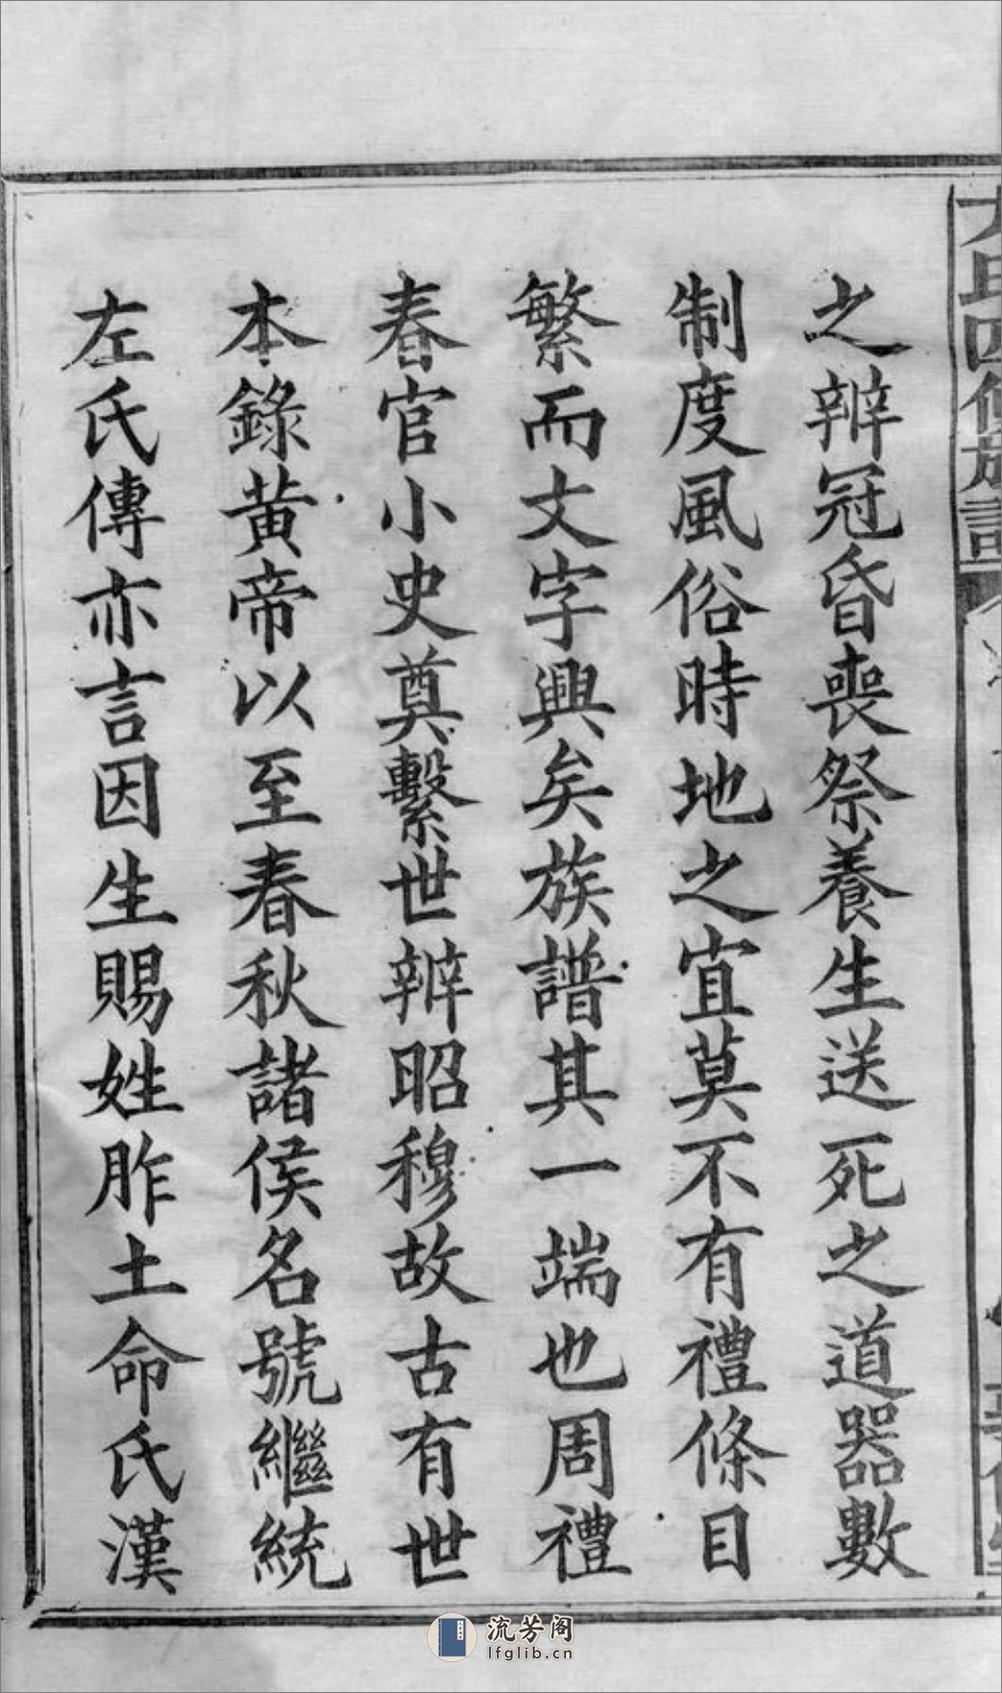 之辨冠昏喪祭養生送死之道器數
制度風俗時地之宜莫不有禮條目
繁而文字興矣族譜其一端也周禮
春官小史奠繫世辨昭穆故古有世
本錄黃帝以至春秋諸侯名號繼統
左氏傳亦言因生賜姓胙土命氏漢
流芳阁
lfglib.cn